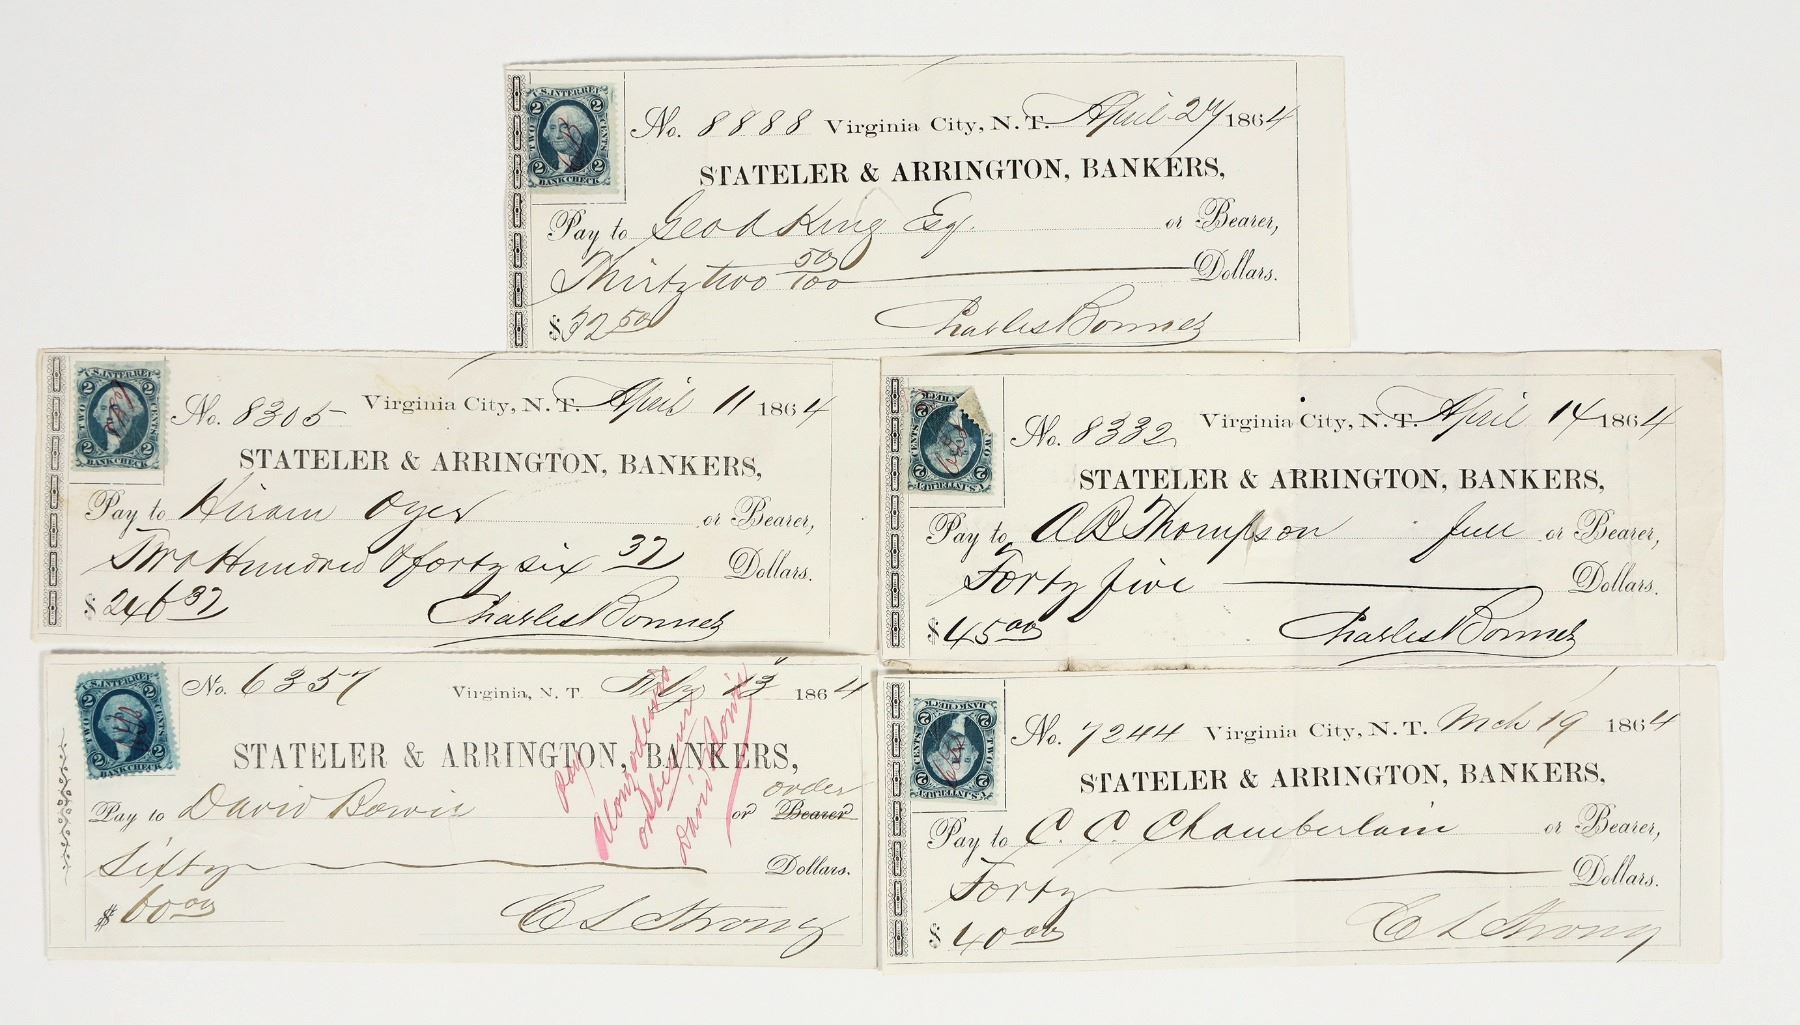 U.S. INTER. REV.
2 2
TWO CENTS
2 2
BANK CHECK
No. 8888 Virginia City, N. T. April 27 1864
STATELER & ARRINGTON, BANKERS,
Pay to Geo A King Esq. or Bearer,
Thirty two 50/100 Dollars.
$32 50 Charles Bonner
U.S. INTER. REV.
2 2
TWO CENTS
2 2
BANK CHECK
No. 8305 Virginia City, N. T. April 11 1864
STATELER & ARRINGTON, BANKERS,
Pay to Hiram Oyer or Bearer,
Two Hundred & forty six 37 Dollars.
$ 246 37 Charles Bonner
CENTS TWO
2 2
U.S. INTER. REV.
No. 8332 Virginia City, N. T. April 14 1864
STATELER & ARRINGTON, BANKERS,
Pay to A B Thompson full or Bearer,
Forty five Dollars.
$ 45 00 Charles Bonner
U.S. INTER. REV.
2 2
TWO CENTS
2 2
BANK CHECK
No. 6357 Virginia, N. T. Feby 13 1864
STATELER & ARRINGTON, BANKERS,
Pay to David Bowie or Bearer order
Sixty Dollars.
$ 60 00 C L Strong
pay
or
David Bowie
BANK CHECK
2 2
CENTS TWO
2 2
U.S. INTER. REV.
No. 7244 Virginia City, N. T. Mch 19 1864
STATELER & ARRINGTON, BANKERS,
Pay to C. C. Chamberlain or Bearer,
Forty Dollars.
$ 40 00 C L Strong